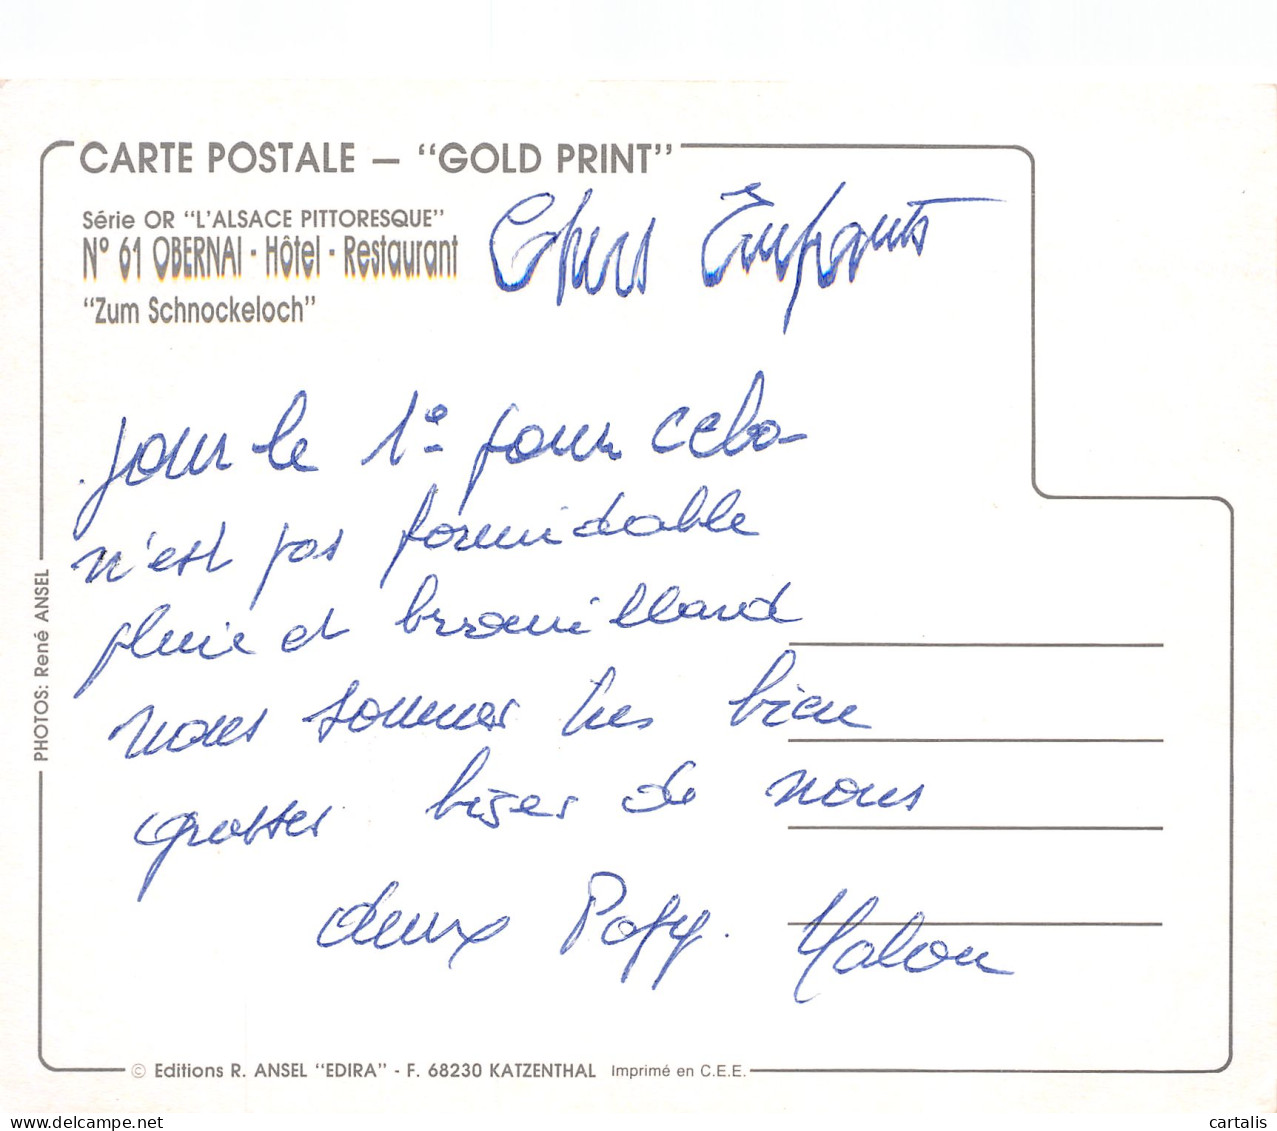 CARTE POSTALE — "GOLD PRINT"
Série OR "L'ALSACE PITTORESQUE"
N° 61 OBERNAI - Hôtel - Restaurant
"Zum Schnockeloch"
Chers Enfants
pour le 1e jour cela
n'est pas formidable
pluie et brrouillard
nous sommes tres bien
grosses bises de nous
deux Papy.
PHOTOS: René ANSEL
© Editions R. ANSEL "EDIRA" - F. 68230 KATZENTHAL Imprimé en C.E.E.
cartalis